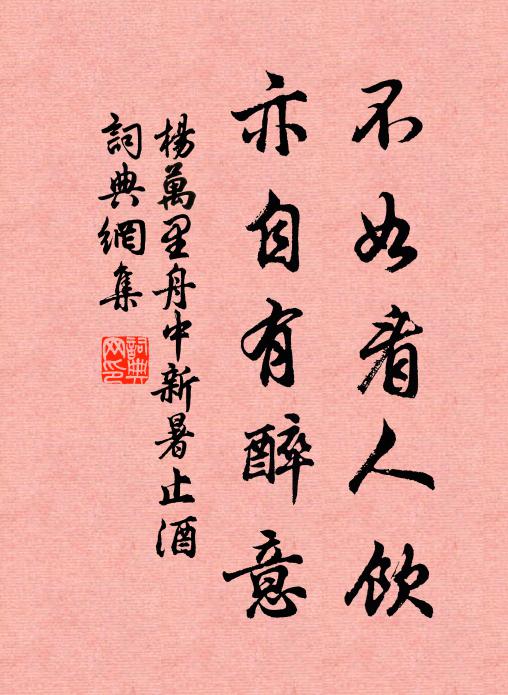 不如看人飲
亦自有醉意
楊萬里舟中新暑止酒
詞典網集
詞典網印